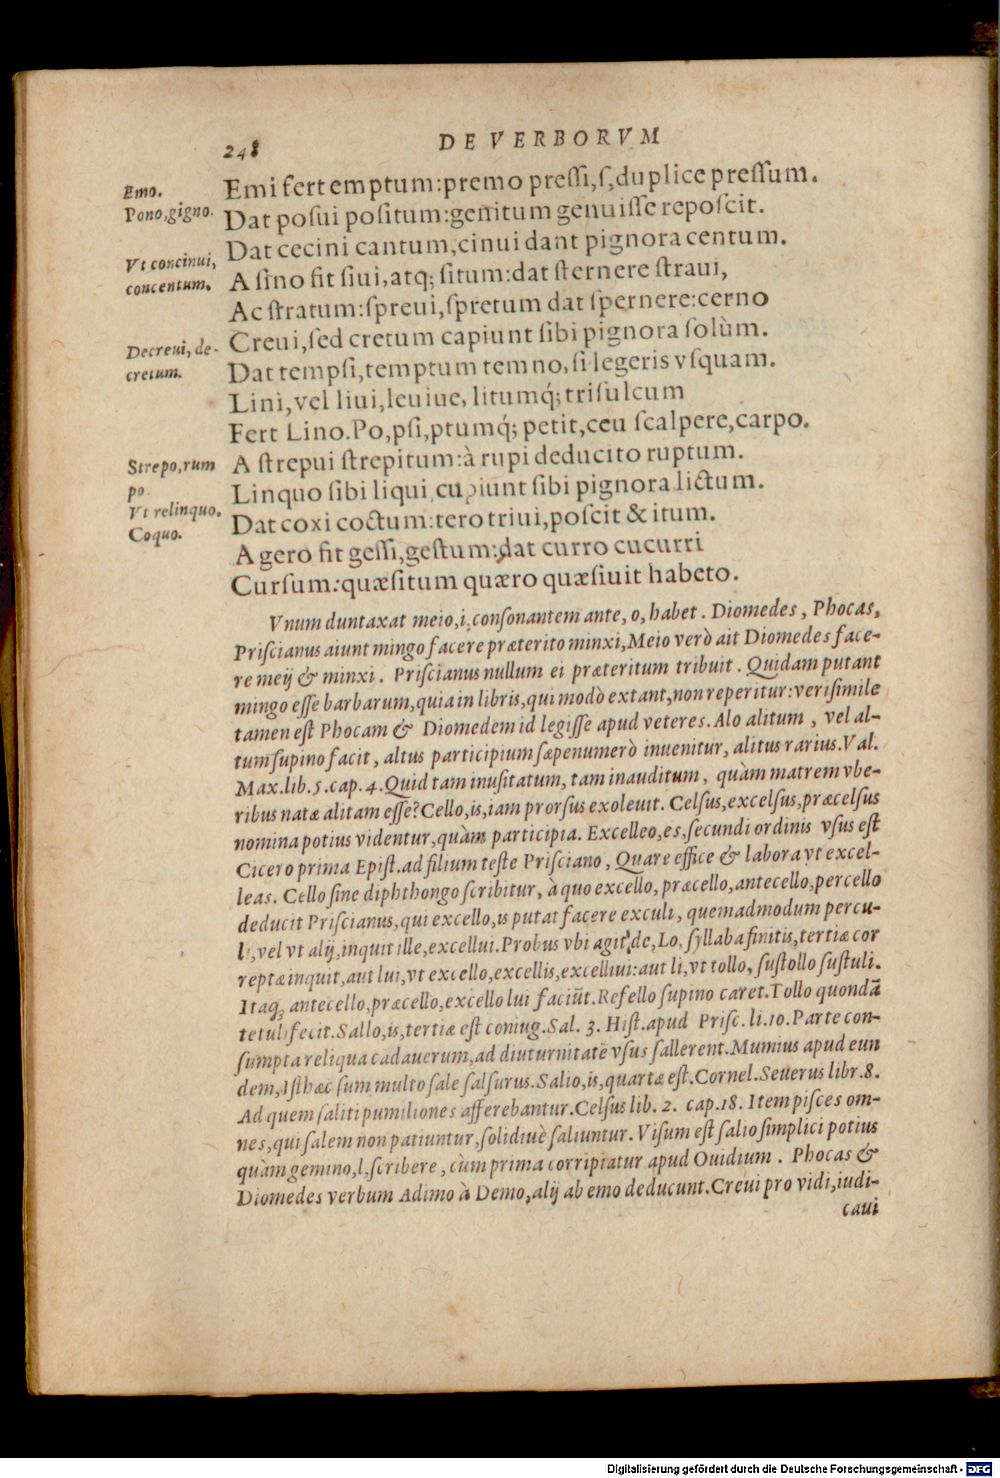 248
DE VERBORVM
Emo.
Emi fert emptum:premo preſſi,ſ,duplice preſſum.
Pono,gigno.
Dat poſui poſitum:genitum genuiſſe repoſcit.
Dat cecini cantum,cinui dant pignora centum.
Vt concinui,
concentum.
A ſino fit ſiui,atq; ſitum:dat ſternere ſtraui,
Ac ſtratum:ſpreui,ſpretum dat ſpernere:cerno
Creui,ſed cretum capiunt ſibi pignora ſolùm.
Decreui, de-
cretum.
Dat tempſi,temptum temno,ſi legeris vſquam.
Lini,vel liui,leuiue, litumq́; triſulcum
Fert Lino.Po,pſi,ptumq́; petit,ceu ſcalpere,carpo.
A ſtrepui ſtrepitum:à rupi deducito ruptum.
Strepo,rum
po.
Linquo ſibi liqui cupiunt ſibi pignora lictum.
Vt relinquo.
Coquo.
Dat coxi coctum:tero triui,poſcit & itum.
A gero fit geſſi,geſtum:dat curro cucurri
Curſum:quæſitum quæro quæſiuit habeto.
Vnum duntaxat meio,i,conſonantem ante, o, habet. Diomedes, Phocas,
Priſcianus aiunt mingo facere præterito minxi,Meio verò ait Diomedes face-
re meij & minxi. Priſcianus nullum ei præteritum tribuit. Quidam putant
mingo eſſe barbarum,quia in libris,qui modò extant,non reperitur:veriſimile
tamen eſt Phocam & Diomedem id legiſſe apud veteres. Alo alitum, vel al-
tum ſupino facit, altus participium ſæpenumerò inuenitur, alitus rarius.Val.
Max.lib.5.cap.4.Quid tam inuſitatum, tam inauditum, quàm matrem vbe-
ribus natæ alitam eſſe?Cello,is,iam prorſus exoleuit. Celſus,excelſus,præcelſus
nomina potius videntur,quàm participia. Excelleo,es,ſecundi ordinis vſus eſt
Cicero prima Epiſt.ad filium teſte Priſciano, Quare effice & labora vt excel-
leas. Cello ſine diphthongo ſcribitur, à quo excello, præcello,antecello,percello
deducit Priſcianus,qui excello,is putat facere exculi, quemadmodum percu-
li,vel vt alij,inquit ille,excellui.Probus vbi agit de,Lo, ſyllaba finitis,tertiæ cor
reptæ inquit,aut lui,vt excello,excellis,excellui:aut li,vt tollo, ſuſtollo ſuſtuli.
Itaq; antecello,præcello,excello lui faciūt.Refello ſupino caret.Tollo quondā
tetuli fecit.Sallo,is,tertiæ eſt coniug.Sal. 3. Hiſt.apud Priſc.li.10.Parte con-
ſumpta reliqua cadauerum,ad diuturnitatē vſus ſallerent.Mumius apud eun
dem,Iſthæc ſum multo ſale ſalſurus.Salio,is,quartæ eſt.Cornel.Seuerus libr.8.
Ad quem ſaliti pumiliones afferebantur.Celſus lib. 2. cap.18. Item piſces om-
nes,qui ſalem non patiuntur,ſolidiuè ſaliuntur. Viſum eſt ſalio ſimplici potius
quàm gemino,l,ſcribere, cùm prima corripiatur apud Ouidium. Phocas &
Diomedes verbum Adimo à Demo,alij ab emo deducunt.Creui pro vidi,iudi-
caui
Digitalisierung gefördert durch die Deutsche Forschungsgemeinschaft - DFG